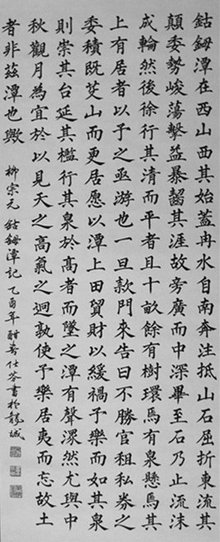 鈷鉧潭在西山西其始蓋冉水自南奔注抵山石屈折東流其
顛委勢峻蕩擊益暴齧其涯故旁廣而中深畢至石乃止流沫
成輪然後徐行其清而平者且十畝餘有樹環焉有泉懸焉其
上有居者以予之亟游也一旦款門來告曰不勝官租私券之
委積既芟山而更居愿以潭上田貿財以緩禍予樂而如其泉
則崇其台延其檻行其泉於高者而墜之潭有聲潀然尤與中
秋觀月為宜於以見天之高氣之迥孰使予樂居夷而忘故土
者非茲潭也歟
柳宗元 鈷鉧潭記 乙酉年 書於龍城